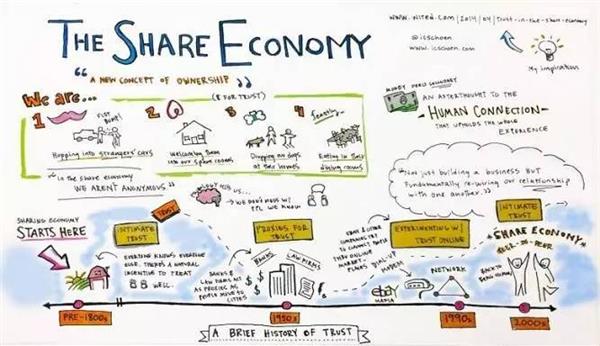 THE SHARE ECONOMY
"A NEW CONCEPT OF OWNERSHIP"
www.wired.com/2014/04/trust-in-the-share-economy
@icschoen
www.icschoen.com
My inspiration
We are...
(& FOR TRUST)
1
FIST BUMP!
Hopping into strangers' cars
2
Welcoming them into our spare rooms
3
Dropping our dogs at their homes
4
feastly
Eating in their dining rooms
"In the share economy
WE AREN'T ANONYMOUS"
MONEY
AN AFTERTHOUGHT TO THE
HUMAN CONNECTION
THAT UPHOLDS THE WHOLE
EXPERIENCE
"Not just building a business BUT
Fundamentally rewiring our relationship
with one another."
SHARING ECONOMY
STARTS HERE
INTIMATE
TRUST
TRUST
EVERYONE KNOWS EVERYONE
ELSE. THERE'S A NATURAL
INCENTIVE TO TREAT
WELL.
PROXIES FOR
TRUST
BANKS
LAW FIRMS
BANKS &
LAW FIRMS ACT
AS PROXIES AS
PEOPLE MOVE TO
CITIES
EXPERIMENTING W/
TRUST ONLINE
EBAY & OTHER
COMPANIES TRY
TO CONNECT PEOPLE
THRU ONLINE
MARKET-
PLACES
DIAL-UP
MODEM
ebay
MAFIA
NETWORK
INTIMATE
TRUST
"SHARE ECONOMY"
PEER-TO-PEER
BACK TO
BEING HUMAN
PRE-1800s
1950s
1990s
2000s
A BRIEF HISTORY OF TRUST